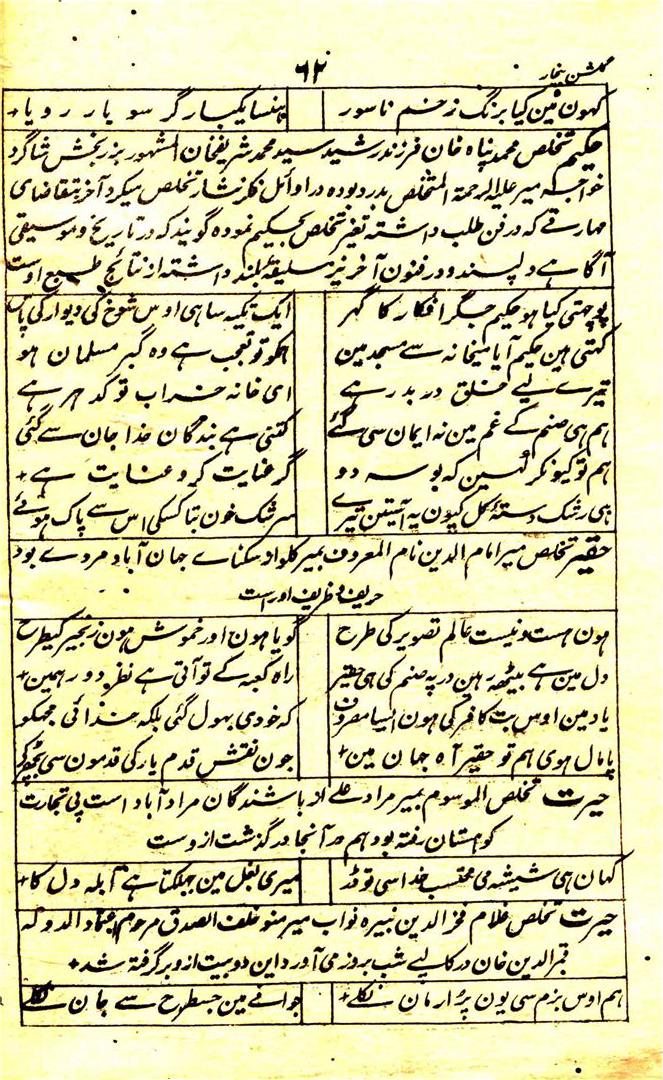 گلشن بیخار
۶۲
کہون مین کیا برنگ زخم ناسور ہنسا یکبار گر سو بار رویا+
حکیم تخلص محمد پناہ خان فرزند رشید سید محمد شریفخان المشہور بزربخش شاگرد
خواجہ میر علیہ الرحمۃ المتخلص بدرد بودہ در اوائل فکر نثار تخلص میکرد آخر بتقاضای
مہارتے کہ در فن طلب داشتہ تغیر تخلص بحکیم نمودہ گویند کہ در تاریخ و موسیقی
آگاہے دلپسند و در فنون آخر نیز سلیقۂ بلند داشتہ از نتائج طبع اوست
پوچہتی کیا ہو حکیم جگر افکار کا گہر ایک تکیہ سا ہی اوس شوخ کی دیوار کی پاس
کہتی ہین حکیم آیا میخانہ سے مسجد مین ہمکو تو تعجب ہے وہ گبر مسلمان ہو
تیرے لیے خلق در بدر ہے ای خانہ خراب تو کدہر ہے
ہم ہی صنم کے غم مین نہ ایمان سی گئے کتنی ہے بندگان خدا جان سے گئی
ہم تو کیونکر کہین کہ بوسہ دو گر عنایت کرو عنایت ہے+
ہی رشک دستۂ گل کیون یہ آستین تیرے سرشک خون بتا کسکی اس سے پاک ہوئے
حقیر تخلص میر امام الدین نام المعروف بمیر کلو از سکناے جہان آباد مردے بود
حریف و ظریف اوراست
ہون ہست و نیست عالم تصویر کی طرح گویا ہون اور خموش ہون زنجیر کیطرح
دل مین ہے بیٹھہ رہین در پہ صنم کی ہی حقیر راہ کعبہ کے تو آتی ہے نظر دور ہمین+
یاد مین اوس بت کافر کی ہون ایسا مصروف کہ خودی بہول گئی بلکہ خدائی مجہکو
پامال ہوی ہم تو حقیر آہ جہان مین+ جون نقش قدم یار کی قدمون سی بچھڑکر
حیرت تخلص الموسوم بمیر مراد علے از باشندگان مرادآباد است پی تجارت
کوہستان رفتہ بود ہم در آنجا درگذشت ازوست
کہان ہی شیشہ می محتسب خدا سی تو ڈر میری بغل مین جہلکتا ہے آبلہ دل کا+
حیرت تخلص غلام فخر الدین نبیرہ نواب میر منو خلف الصدق مرحوم اعتماد الدولہ
قمر الدین خان در کالپے شب بروز می آورد این دو بیت از و بر گرفتہ شد+
ہم اوس بزم سی یون پر ارمان نکلے+ جوانے مین جسطرح سے جان نکلے